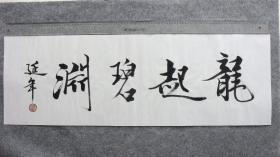 龍起碧淵
延年